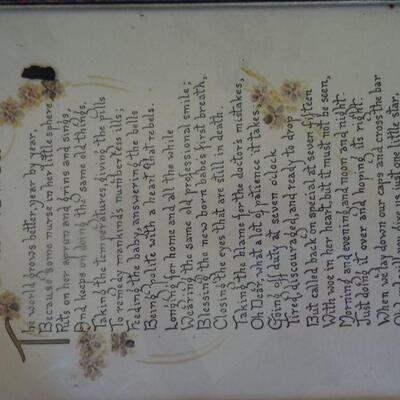 The world grows better, year by year,
Because some nurse in her little sphere
Puts on her apron and grins and sings,
And keeps on doing the same old things,
Taking the temperatures, giving the pills
To remedy mankind's numberless ills;
Feeding the baby, answering the bells
Being polite with a heart that rebels.
Longing for home and all the while
Wearing the same old professional smile;
Blessing the new born babe's first breath,
Closing the eyes that are still in death.
Taking the blame for the doctor's mistakes,
Oh Dear, what a lot of patience it takes;
Going off duty at seven o'clock
Tired, discouraged, and ready to drop
But called back on special at seven fifteen
With woe in her heart, but it must not be seen,
Morning and evening, and noon and night
Just doing it over and hoping its right.
When we lay down our caps and cross the bar
Oh Lord will you give us just one little star,